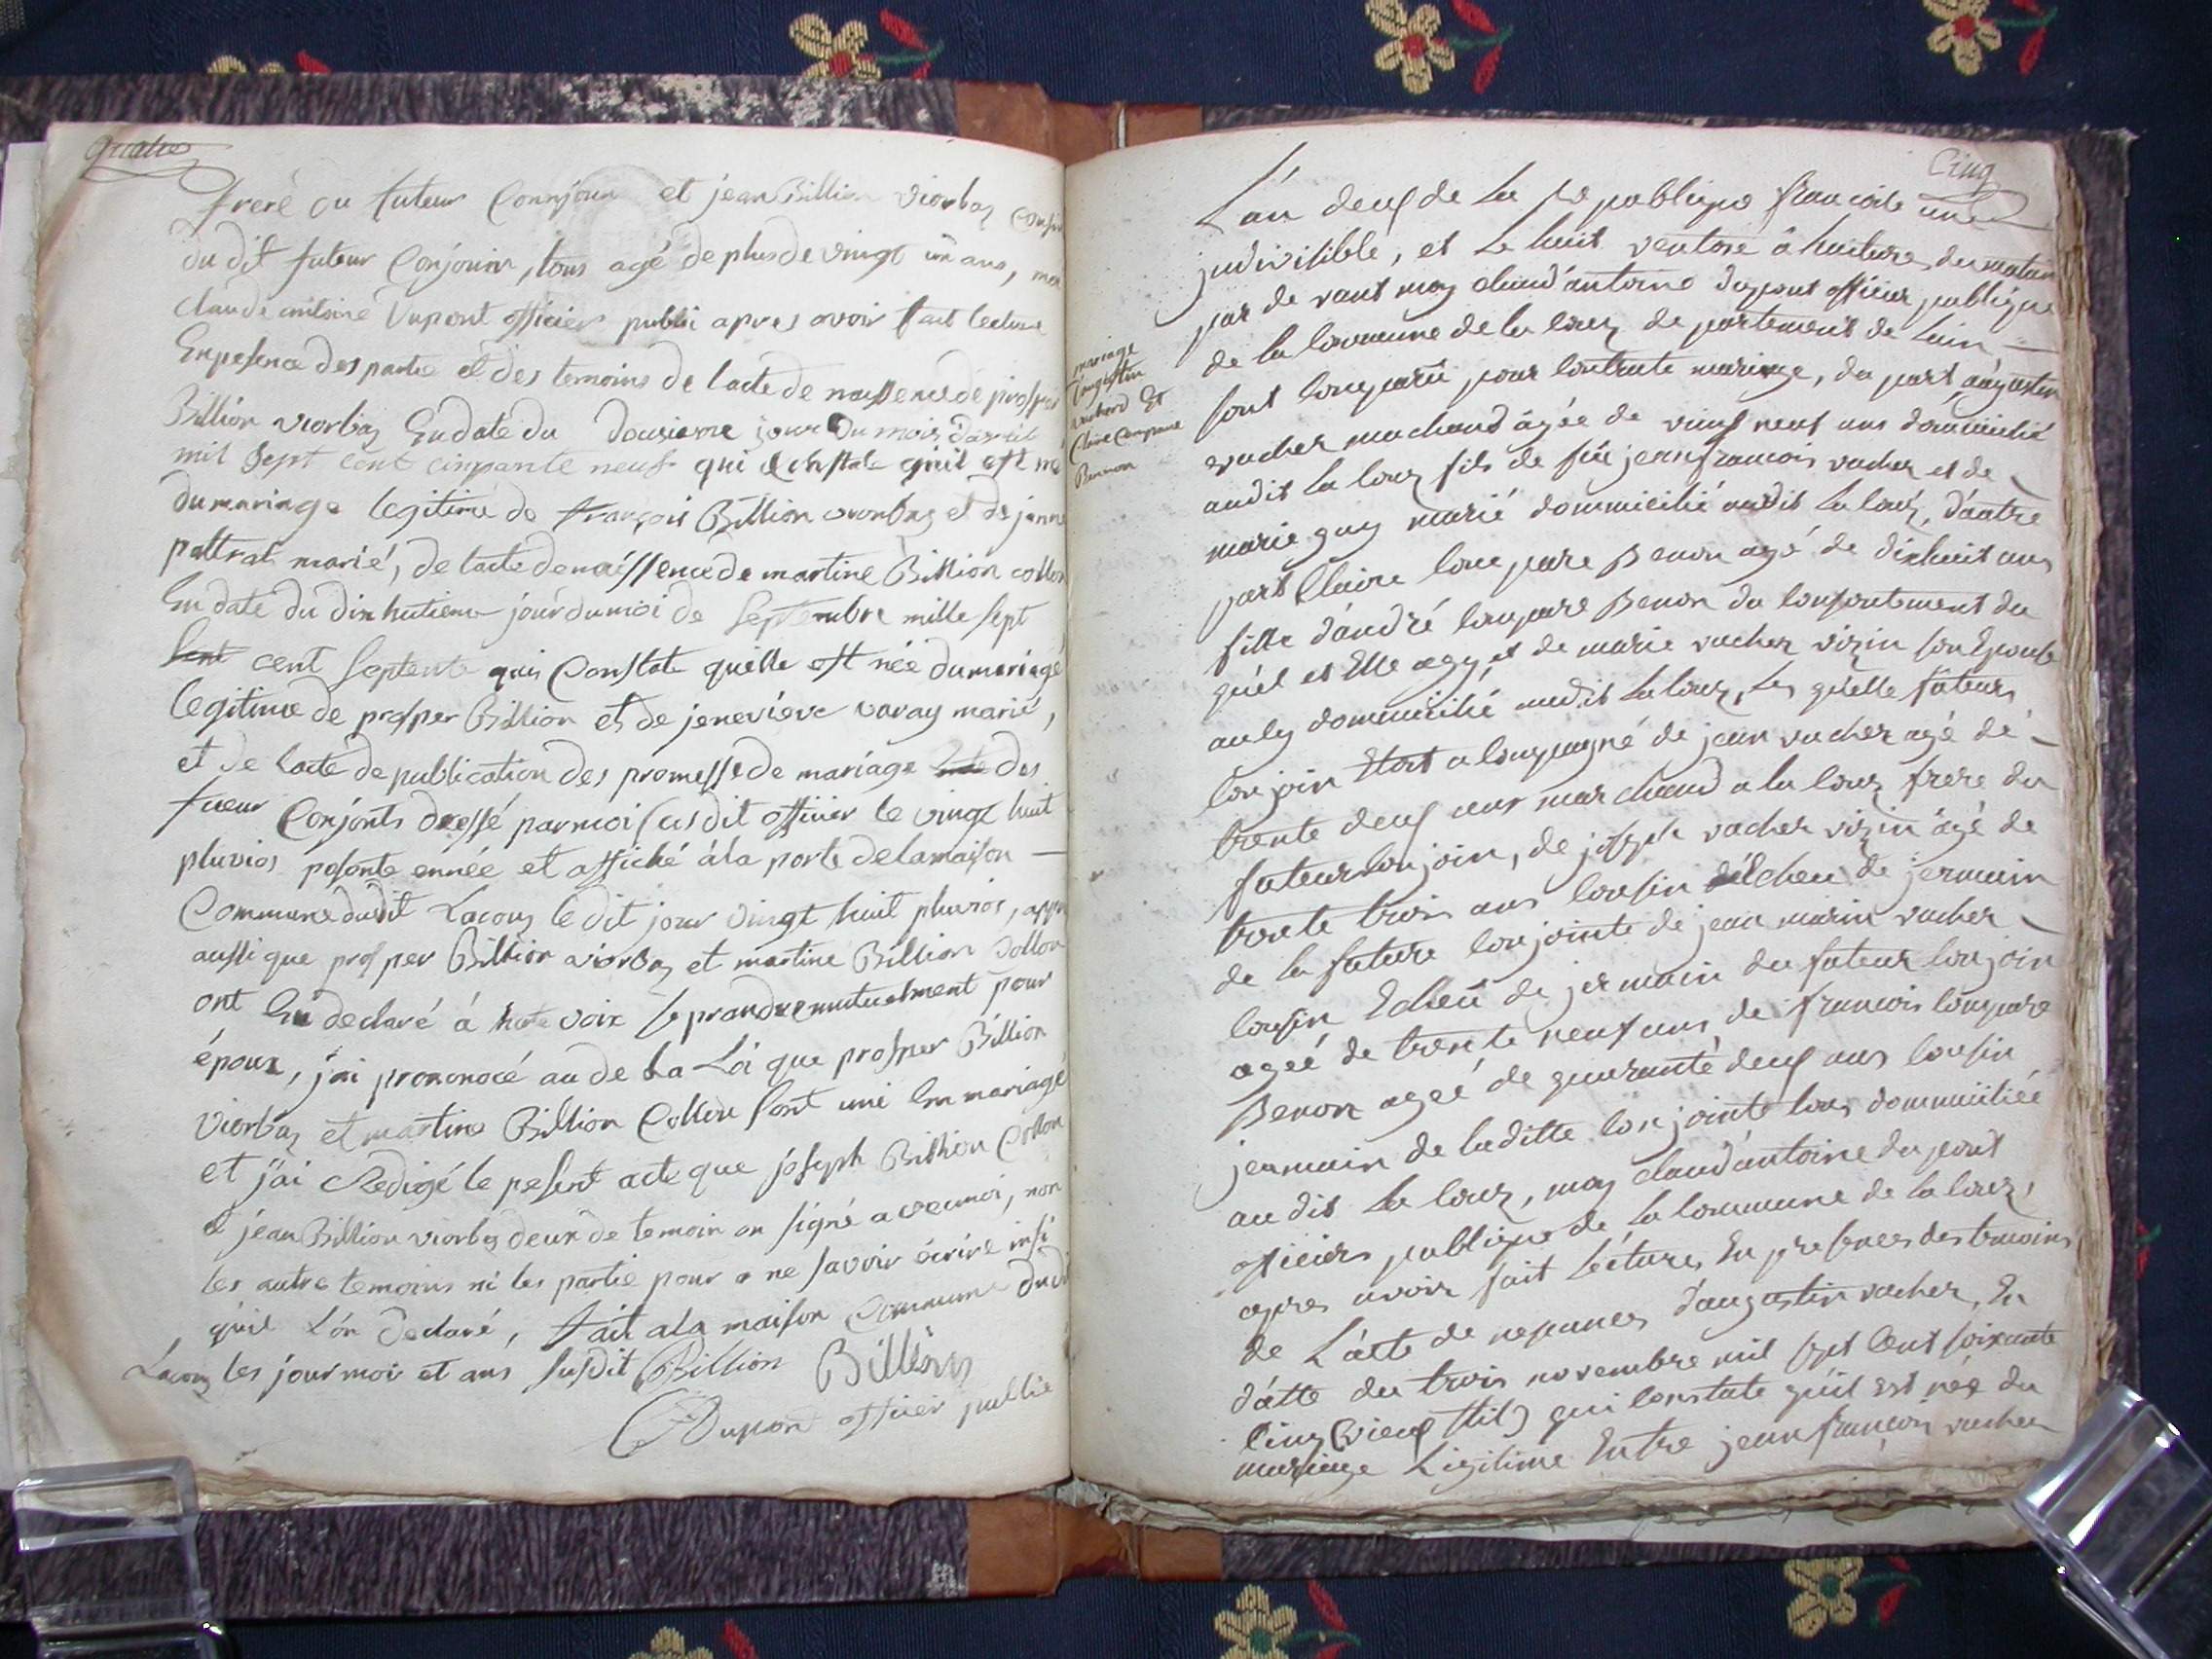 quatre
frere du futeur Conjoin et jean Billion viorbaz Cousin
du dit futeur Conjoint, tous agé de plus de vingt un ans, moi
Claude antoine Dupont officier public apres avoir fait lecture
En pesence des partie et des temoins de lacte de naissence de prosper
Billion viorbaz En date du deusieme jour Du mois davril
mil sept cent cinpante neuf qui Constate qu'il est né
du mariage legitime de françois Billion viorbaz et de janne
pattrat marié, de lacte de naissence de martine Billion collon
En date du dix huitieme jour du moi de Septembre mille sept
cent Septente qui Constate quelle est née du mariage
legitime de prosper Billion et de jenevieve varay marié,
et de lacte de publication des promesse de mariage des
fueur Conjonts dressé par moi susdit officier le vingt huit
pluvios pesente ennée et affiché à la porte de la maison —
Commune dudit Lacoux le dit jour vingt huit pluvios, apres
aussi que prosper Billion viorbaz et martine Billion Collon
ont En declaré à hate voix se prandre mutuelment pour
époux, j'ai prononcé au de La Loi que prosper Billion
viorbaz et martine Billion Collon sont uni En mariage
et j'ai Redigé le pesent acte que joseph Billion Collon
et jean Billion viorbaz deux de temoin on signé avec moi, non
les autre temoins ni les partie pour ne savoir écrire insi
qu'il L'on Declaré, fait a la maison Commune dudit
Lacoux les jour moi et ans susdit Billion Billion
Dupont officier public
Cinq
L'an deux de La Republique francoise une
indivisible, et Le huit ventose à huit heures du matin
par de vant moy claud'antoine dupont officier publique
de la Commune de la Coux de partement de Lain —
sont Comparü pour Contracte mariage, du part, augustin
vacher marchand âgée de vingt neuf ans domicilié
audit La Coux fils de fûe jean francois vacher et de
marie guy marié dommicilié audit La Coux, d'autre
part Claire Compare Benon agé de dixhuit ans
fille d'andré Compare Benon du Consentement du
quel et Elle agy, et de marie vacher vizin son Epouse
aussy dommicilié audit La Coux, Les quelle futeurs
Conjoin Etat acompagné de jean vacher agé de —
trente deux ans marchand a la Coux frere du
futeur Conjoin, de joseph vacher vizin âgé de
trente trois ans Cousin Echeu de jermain
de la future Conjointe de jean marin vacher —
Cousin Echeü de jermain du futeur Conjoin
ageé de trente neuf ans de francois Compare
Benon ageé de quarante deux ans Cousin
jermain de laditte Conjointe tous dommiciliée
au dit La Coux, moy claud'antoine dupont
officiers publique de La Commune de la Coux,
apres avoir fait Lecture, En presences des temoins
de L'acte de nessances d'augustin vacher, En
datte du trois novembre mil sept Cent soixante
Cinq (vieux stil) qui Constate qu'il est née du
mariage Legitime Entre jean françois vacher
mariage
d'augustin
vacherd Et
Claire Compare
Bennon